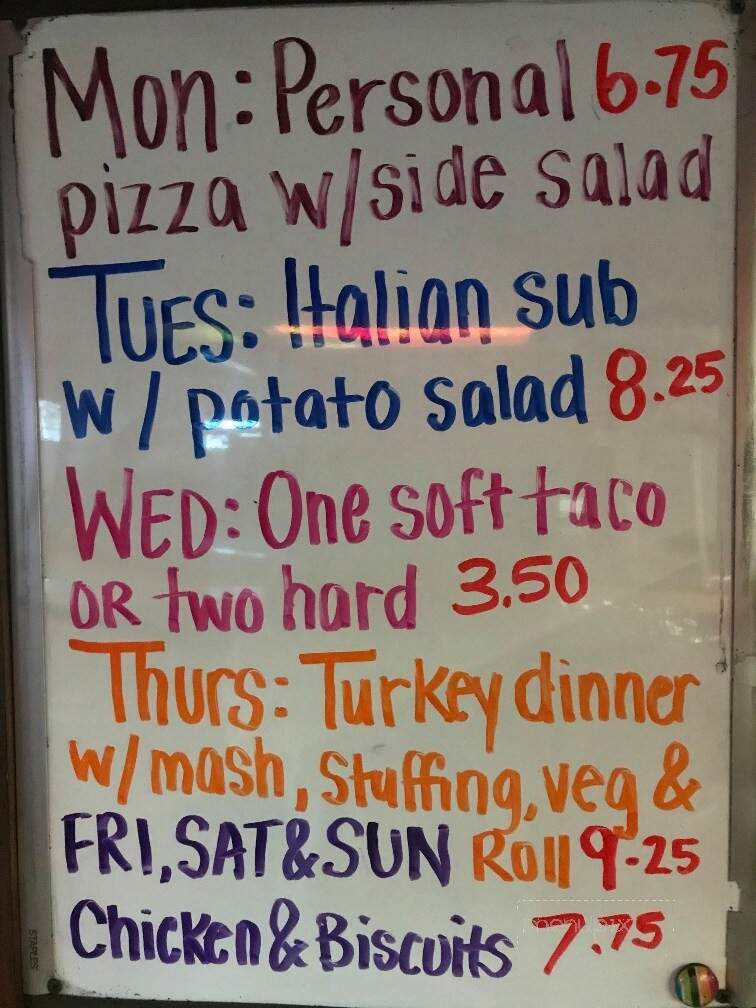 Mon: Personal 6.75
pizza w/side salad
TUES: Italian sub
w/ potato salad 8.25
WED: One soft taco
OR two hard 3.50
Thurs: Turkey dinner
w/mash, Stuffing, veg &
FRI, SAT & SUN Roll 9.25
Chicken & Biscuits 7.75
STAPLES